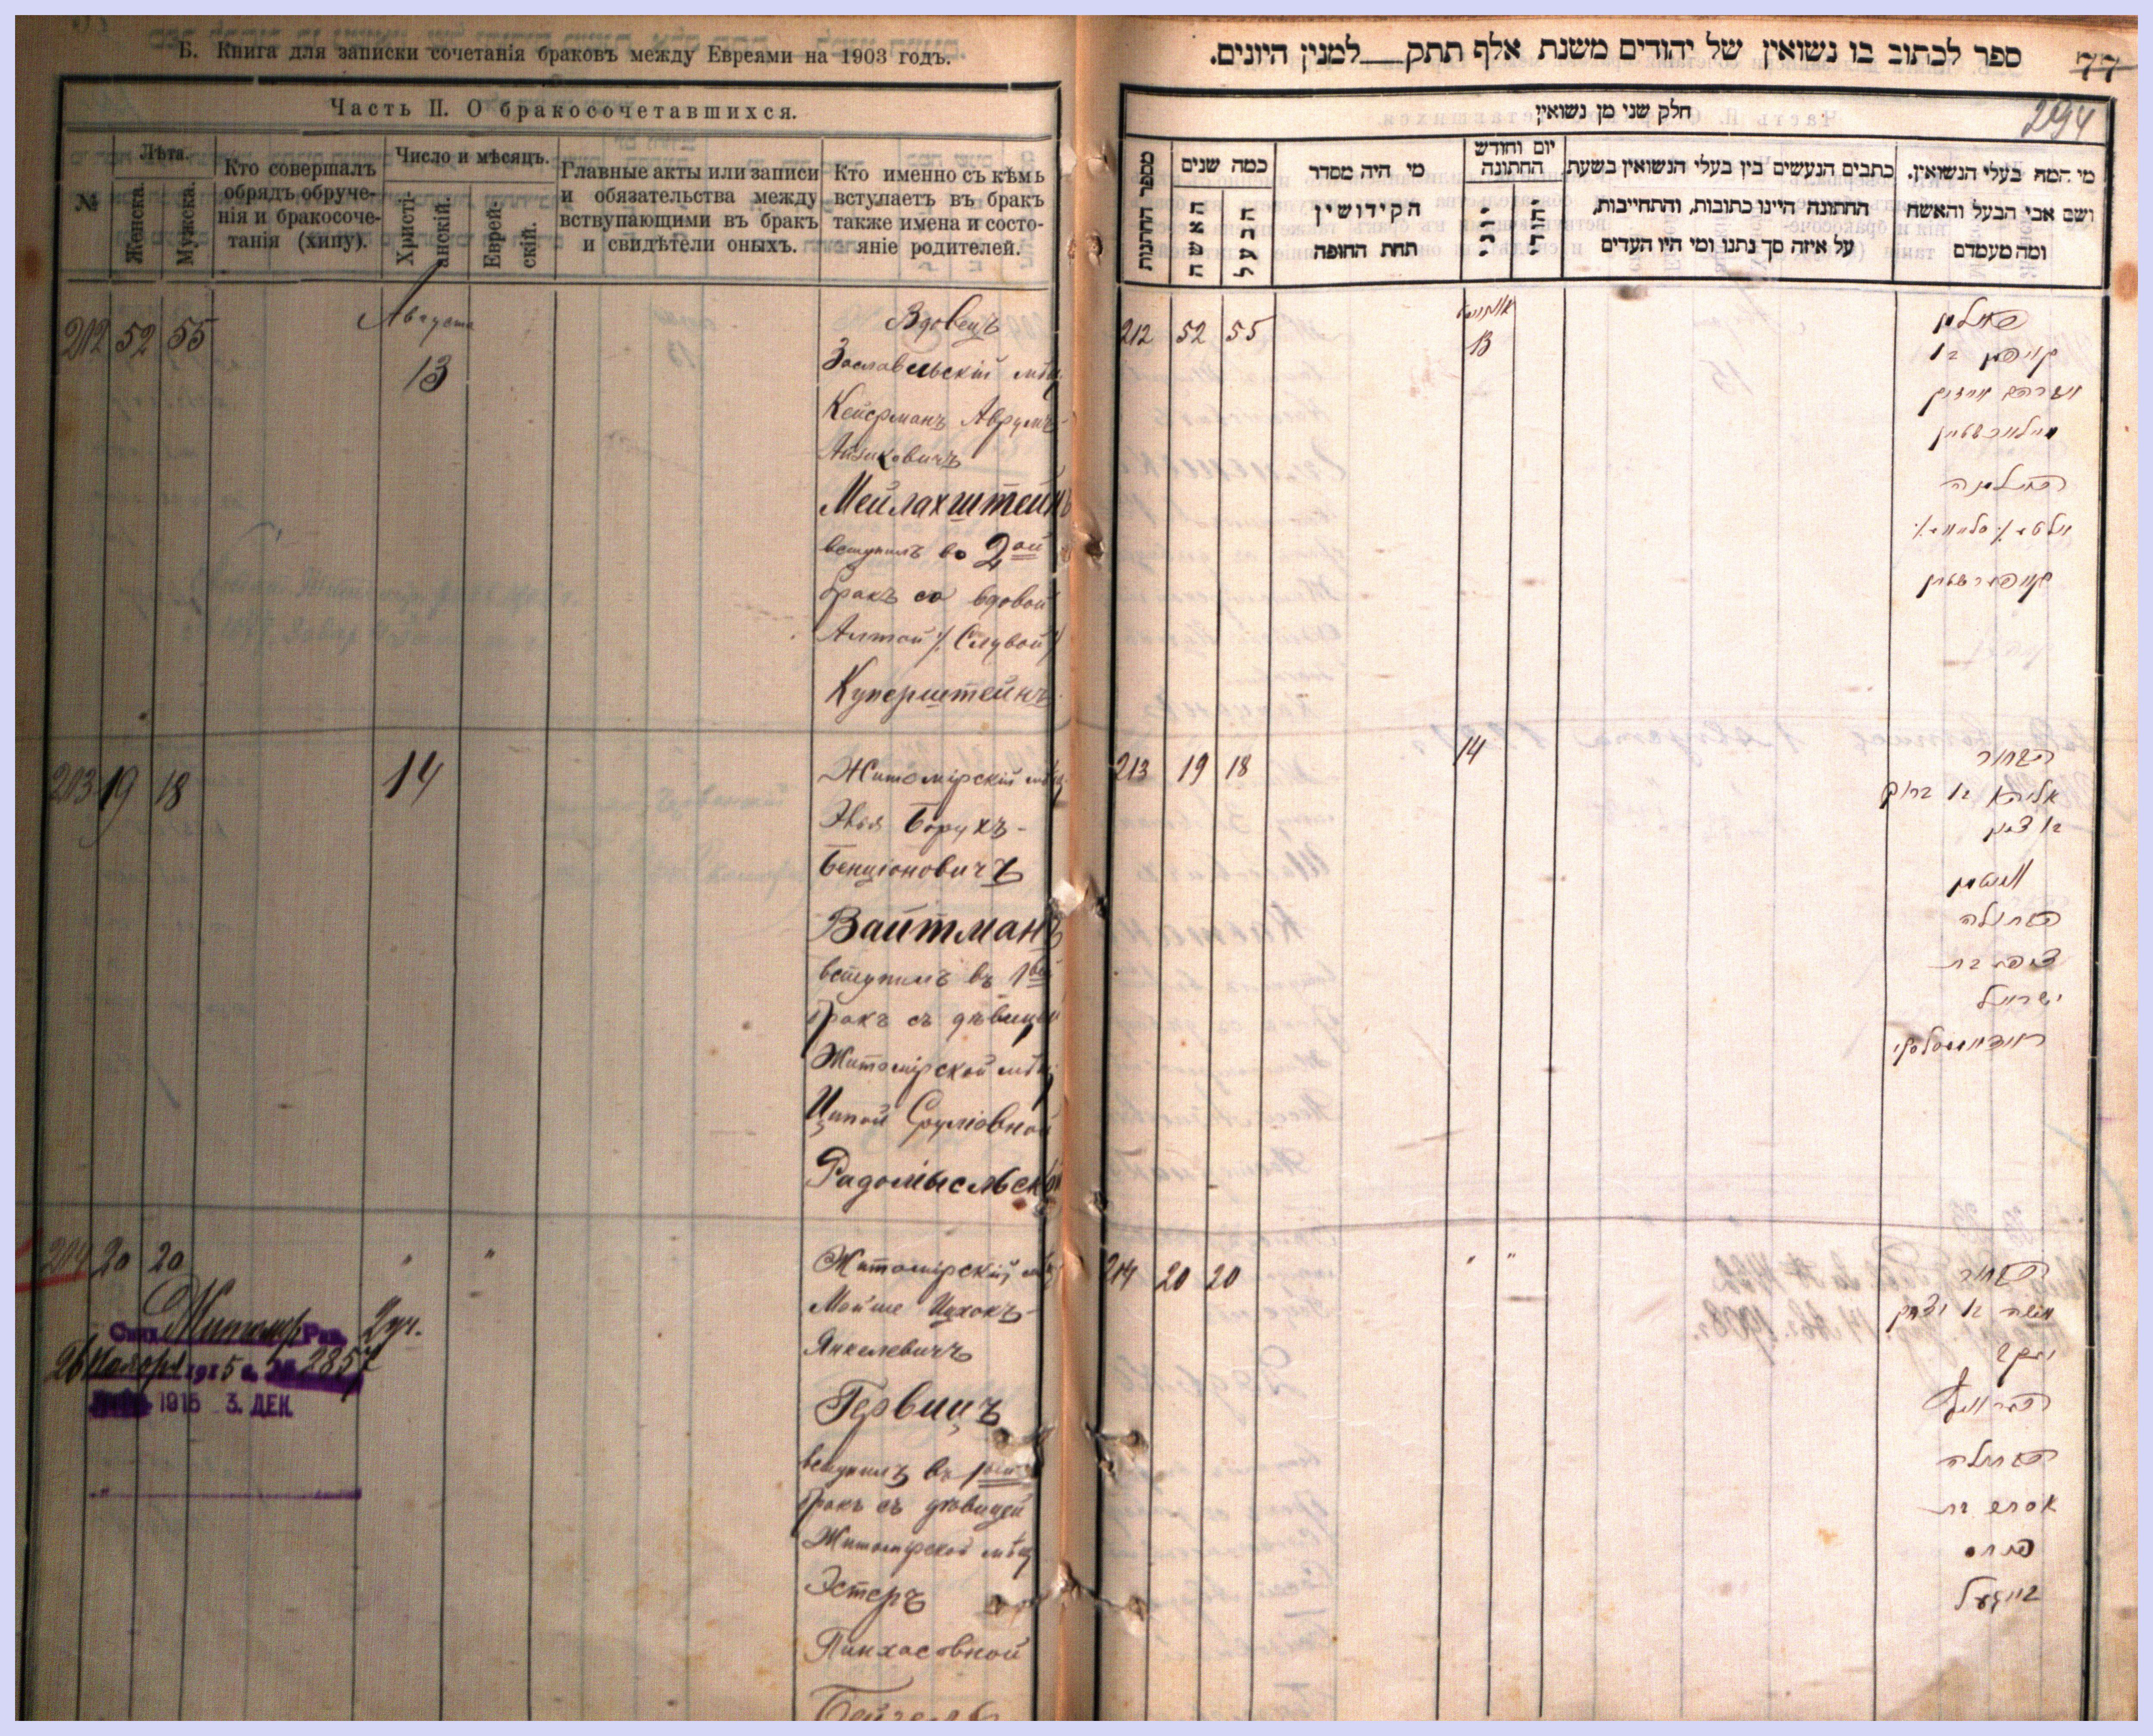 Б. Книга для записки сочетанія браковъ между Евреями на 1903 годъ.
Часть II. О бракосочетавшихся.
№
Лѣта.
Женска.
Мужска.
Кто совершалъ
обрядъ обруче-
нія и бракосоче-
танія (хипу).
Число и мѣсяцъ.
Христі-
анскій.
Еврей-
скій.
Главные акты или записи
и обязательства между
вствупающими въ бракъ
и свидѣтели оныхъ.
Кто именно съ кѣмъ
вступаетъ въ бракъ
также имена и состо-
яніе родителей.
212 52 55
Августа
13
Вдовецъ
Заславльскій мѣщ.
Кейсрманъ Аврумъ-
Айзиковичъ
Мейлахштейнъ
вступилъ во 2ой
бракъ со вдовой
Алтой /Слувой/
Куперштейнъ
213 19 18
14
Житомірскій мѣщ.
Элья Борухъ-
Бенціоновичъ
Вайтманъ
вступилъ въ 1ый
бракъ съ дѣвицей
Житомірской мѣщ
Ципой Сруліовной
Радомысльской
214 20 20
" "
Житомірскій мѣщ
Мойше Ицхокъ-
Янкелевичъ
Гервицъ
вступилъ въ 1ый
бракъ съ дѣвицей
Житомірской мѣщ
Эстеръ
Пинхасовной
Житомір. Рав. 2 уч.
26 Ноября 1915 г. № 2857
1915 3. ДЕК.
ספר לכתוב בו נשואין של יהודים משנת אלף תתק למנין היונים.
77
294
חלק שני מן נשואין
מספר החתונות
כמה שנים
האשה
הבעל
מי היה מסדר
הקידושין
תחת החופה
יום וחודש
החתונה
יוני
יהודי
כתבים הנעשים בין בעלי הנשואין בשעת
החתונה היינו כתובות, והתחייבות,
על איזה סך נתנו ומי היו העדים
מי המה בעלי הנשואין.
ושם אבי הבעל והאשה
ומה מעמדם
212 52 55
13
213 19 18
14
הבחור
אליהו בן ברוך
בן ציון
וויטמאן
הבתולה
ציפה בת
ישראל
214 20 20
" "
הבחור
משה בן יצחק
יעקב
הבתולה
אסתר בת
פנחס
בייגעל